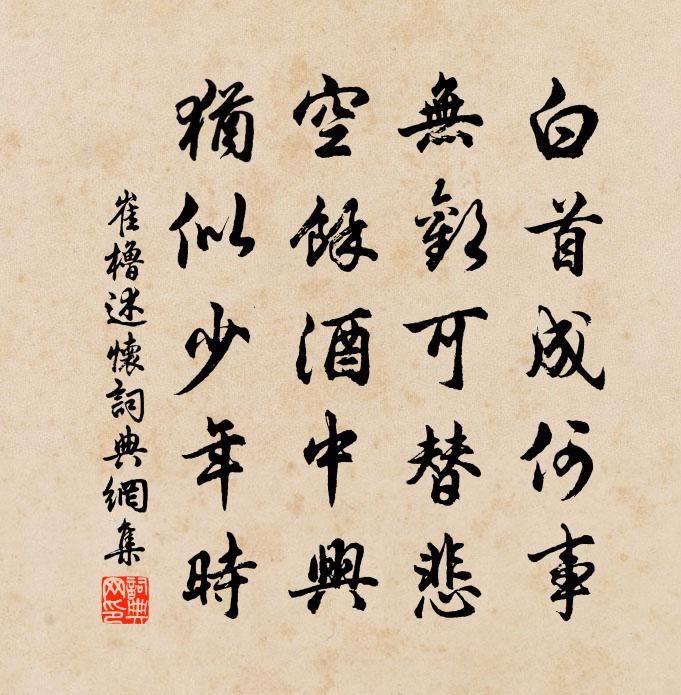 白首成何事
無歡可替悲
空餘酒中興
猶似少年時
崔櫓述懷詞典網集
詞典网印